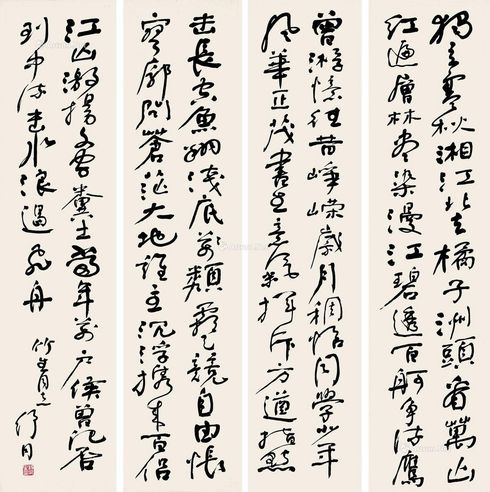 獨立寒秋湘江北去橘子洲頭看萬山
紅遍層林盡染漫江碧透百舸爭流鷹
曾游憶往昔崢嶸歲月稠恰同學少年
風華正茂書生意氣揮斥方遒指點
击長空魚翔淺底萬類霜天競自由悵
寥廓問蒼茫大地誰主沉浮攜來百侶
江山激揚文字糞土當年萬户侯曾記否
到中流击水浪遏飛舟
舒同